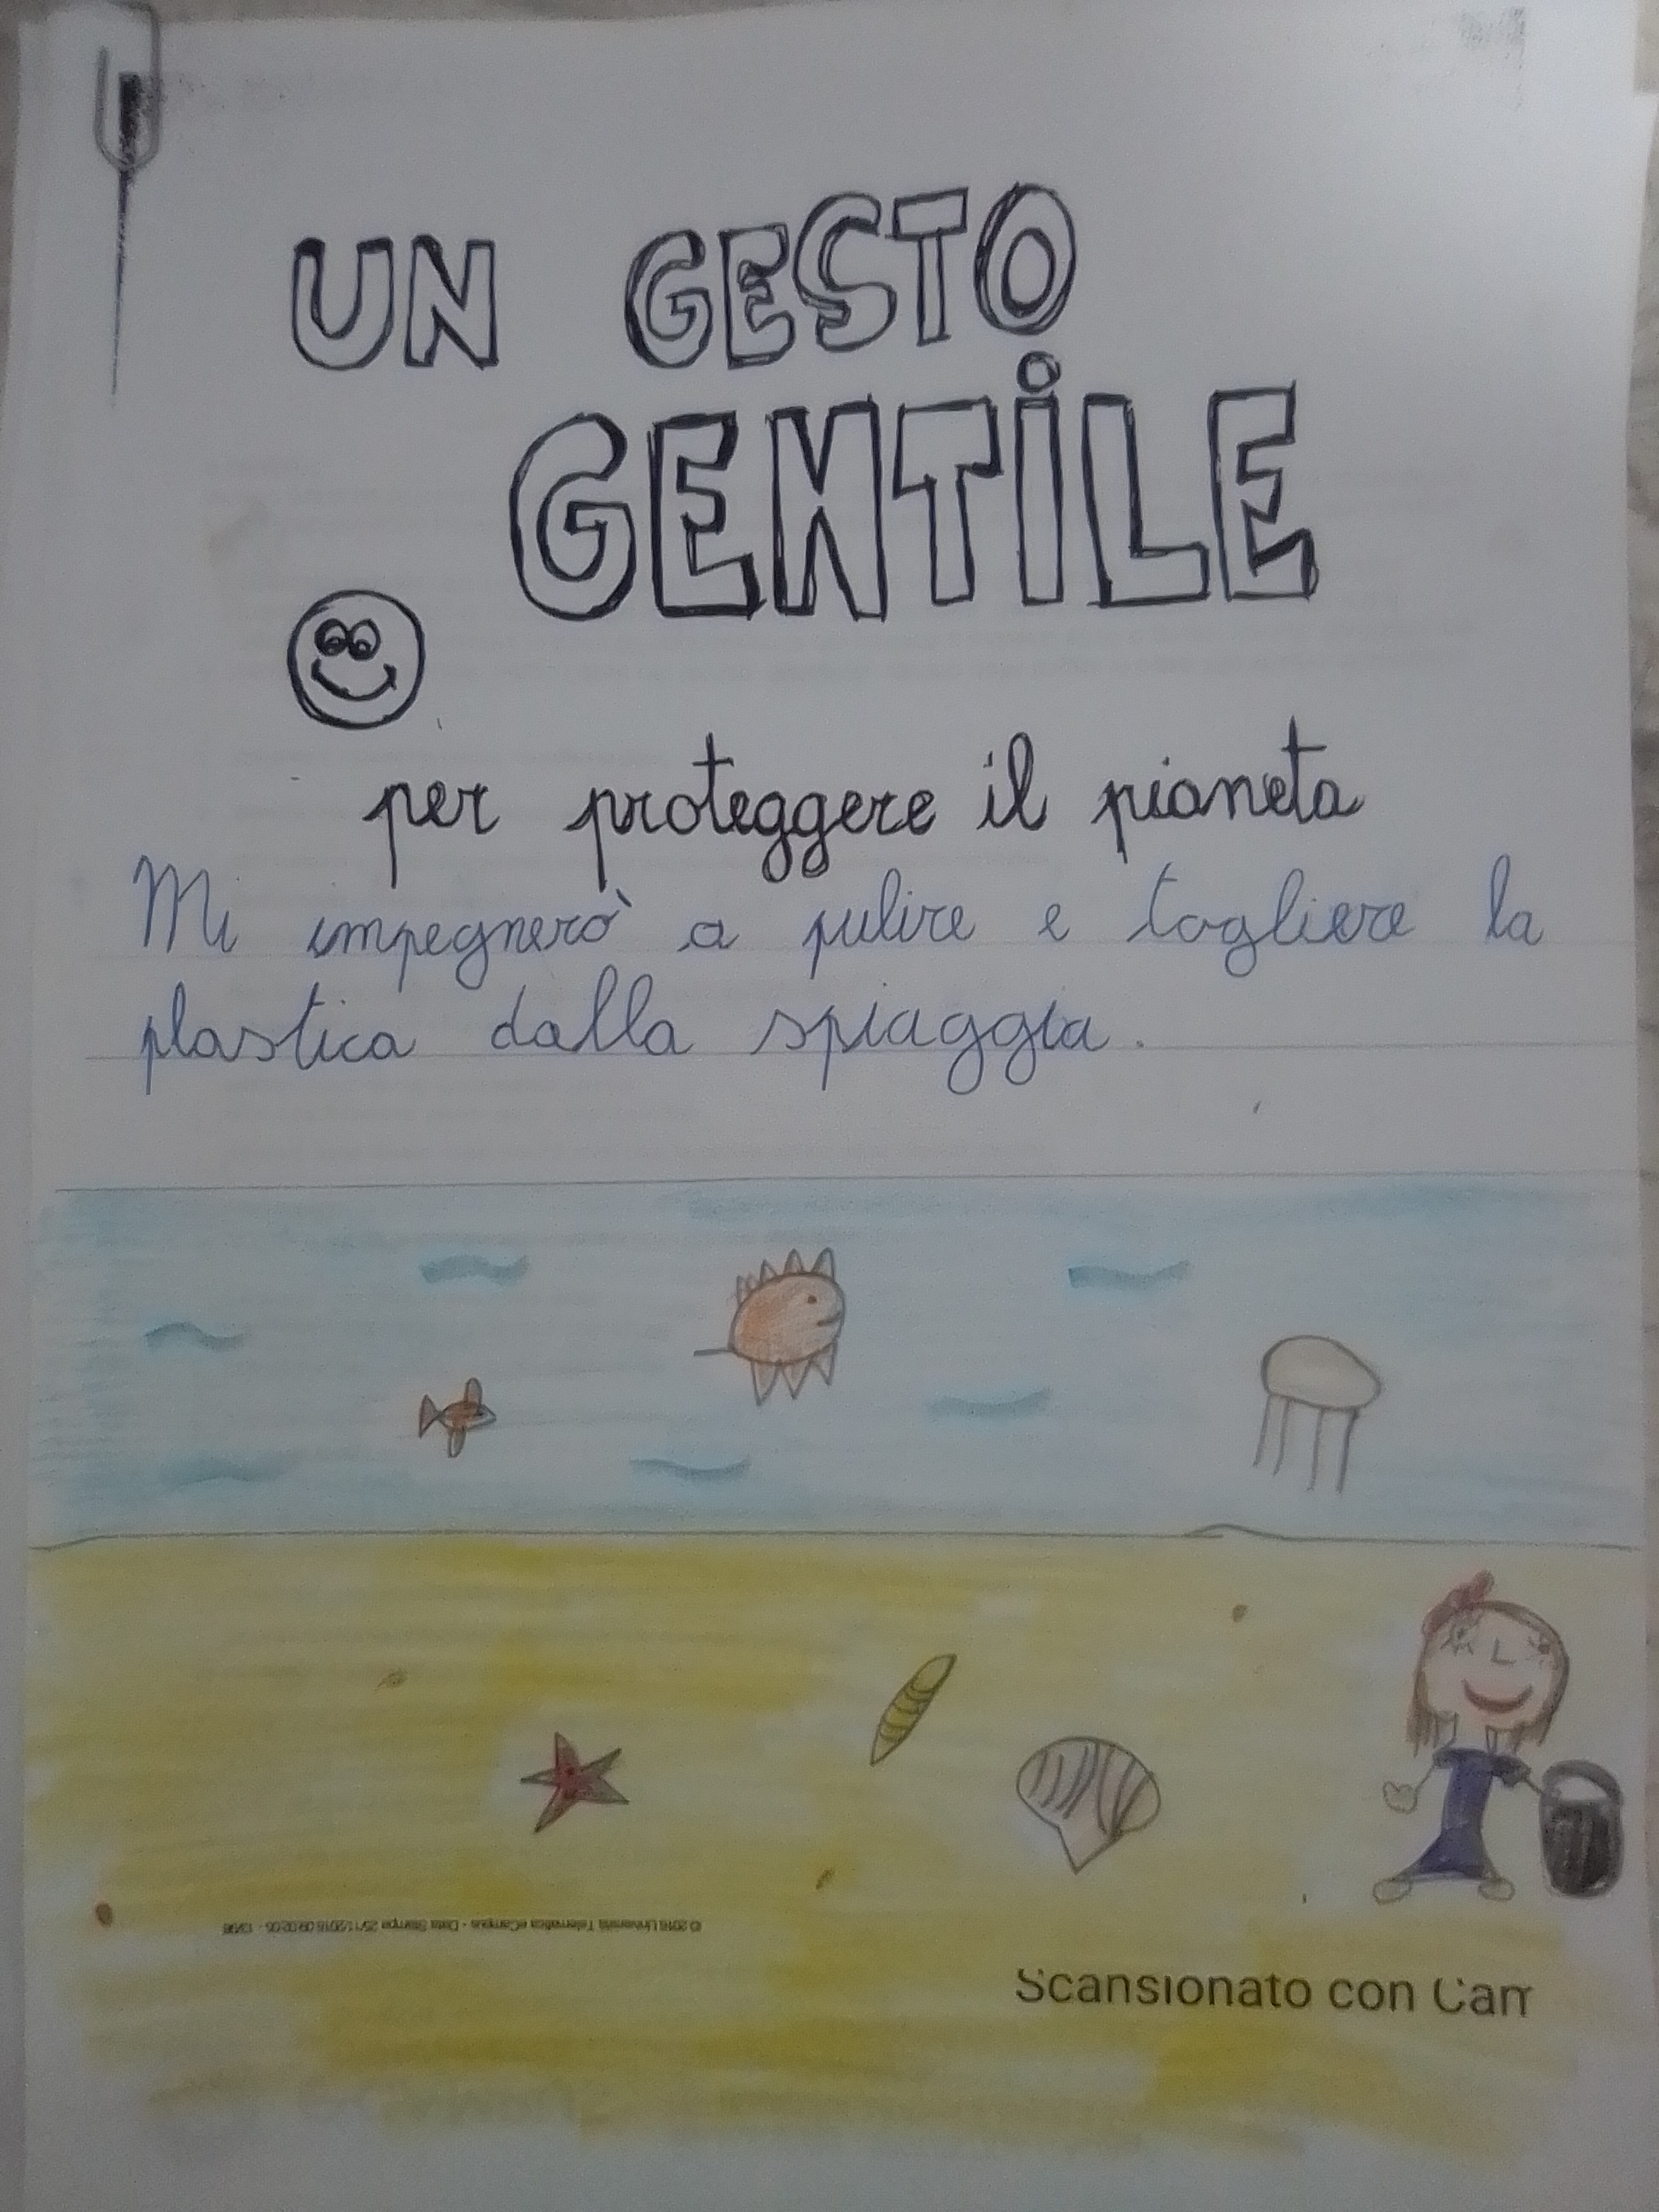 UN GESTO
GENTiLE
per proteggere il pianeta
Mi impegnerò a pulire e togliere la
plastica dalla spiaggia.
© 2016 Università Telematica eCampus - Data Stampa 25/11/2016 09:02:05 - 13/96
Scansionato con Cam